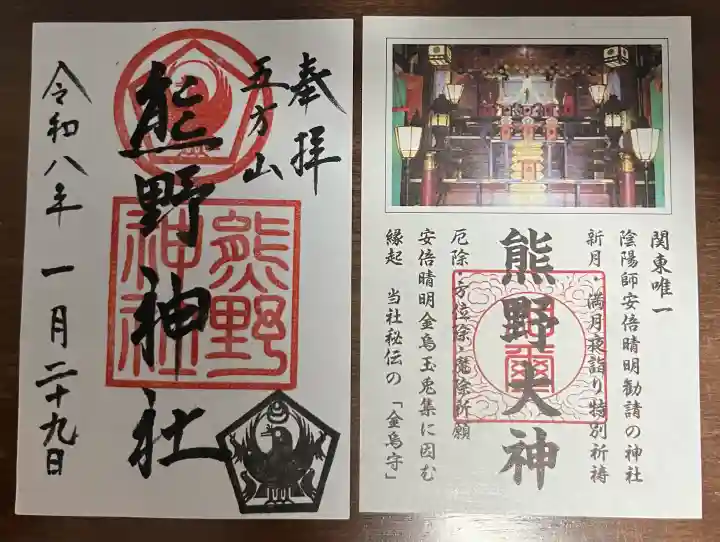 奉拝
五方山
熊野神社
熊野神社
令和八年一月二十九日
関東唯一
陰陽師安倍晴明勧請の神社
新月・満月夜詣り特別祈祷
熊野大神
厄除・方位除・魔除祈願
安倍晴明金烏玉兎集に因む
縁起 当社秘伝の「金烏守」